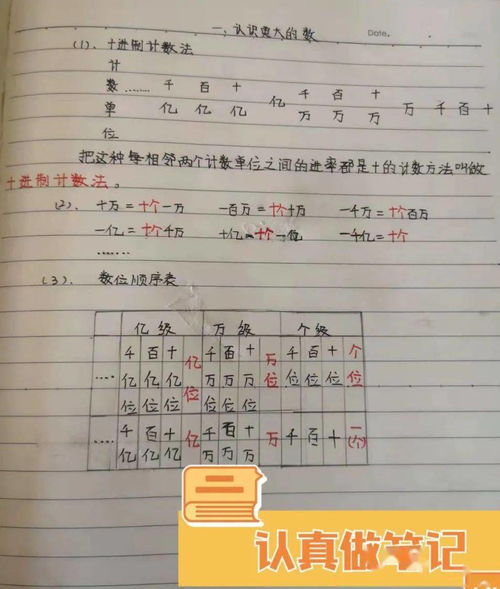 一、认识更大的数
Date.
(1)、十进制计数法
计
数 …… 千 百 十 亿 千 百 十 万 千 百 十
单 亿 亿 亿 万 万 万
位
把这种每相邻两个计数单位之间的进率都是十的计数方法叫做
十进制计数法。
(2)、十万=十个一万 一百万=十个十万 一千万=十个百万
一亿=十个千万 十亿=十个一亿 一千亿=十个
……
(3)、数位顺序表
亿级 万级 个级
…… 千 百 十 亿 千 百 十 万 千 百 十 个
亿 亿 亿 位 万 万 万 位 位 位 位 位
位 位 位 位 位 位
…… 千 百 十 亿 千 百 十 万 千 百 十 一
亿 亿 亿 万 万 万 (个)
认真做笔记